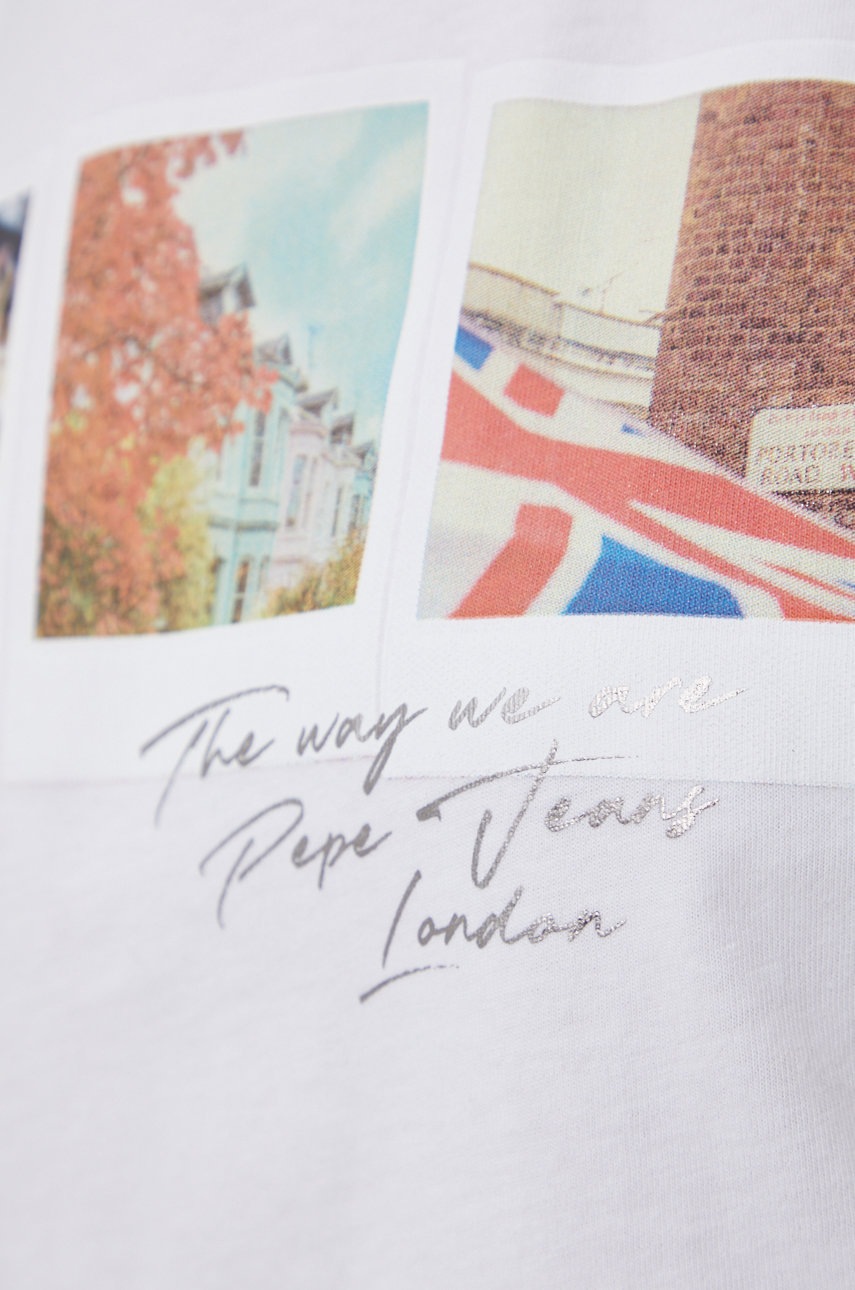 PORTOBE
ROAD, W
The way we are
Pepe Jeans
London